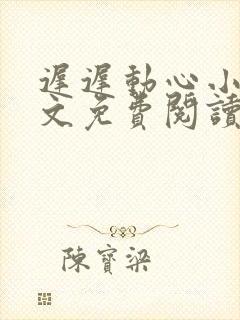 遲遲動心小
文免費閱讀
陳寶梁